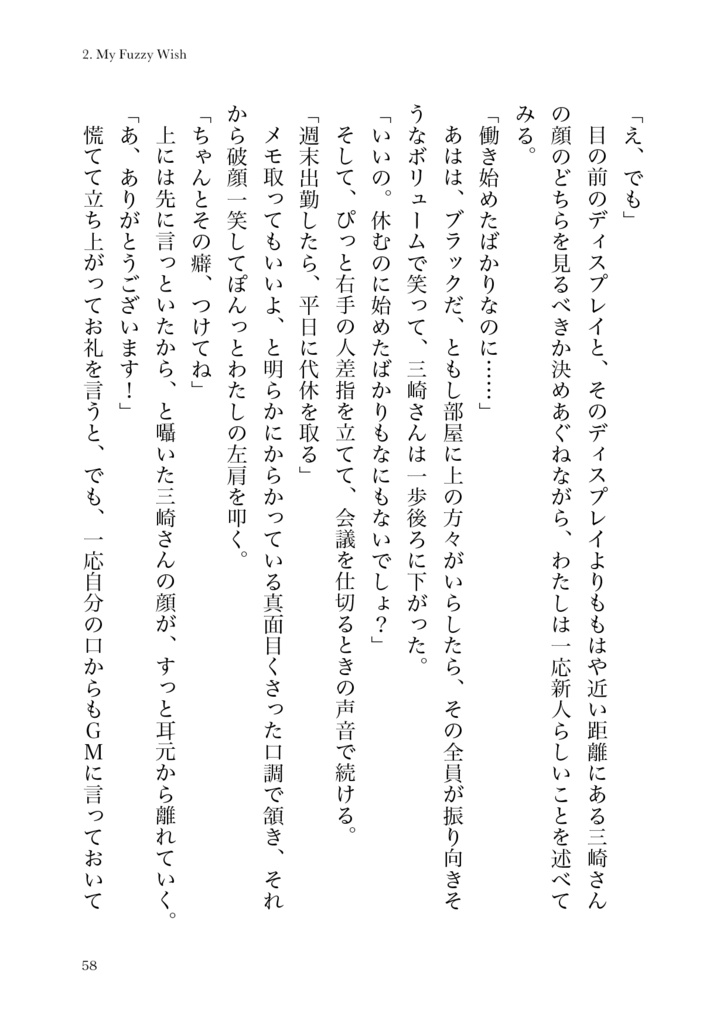 2. My Fuzzy Wish
「え、でも」
目の前のディスプレイと、そのディスプレイよりももはや近い距離にある三崎さん
の顔のどちらを見るべきか決めあぐねながら、わたしは一応新人らしいことを述べて
みる。
「働き始めたばかりなのに……」
あはは、ブラックだ、ともし部屋に上の方々がいらしたら、その全員が振り向きそ
うなボリュームで笑って、三崎さんは一歩後ろに下がった。
「いいの。休むのに始めたばかりもなにもないでしょ？」
そして、ぴっと右手の人差指を立てて、会議を仕切るときの声音で続ける。
「週末出勤したら、平日に代休を取る」
メモ取ってもいいよ、と明らかにからかっている真面目くさった口調で頷き、それ
から破顔一笑してぽんっとわたしの左肩を叩く。
「ちゃんとその癖、つけてね」
上には先に言っといたから、と囁いた三崎さんの顔が、すっと耳元から離れていく。
「あ、ありがとうございます！」
慌てて立ち上がってお礼を言うと、でも、一応自分の口からもＧＭに言っておいて
58